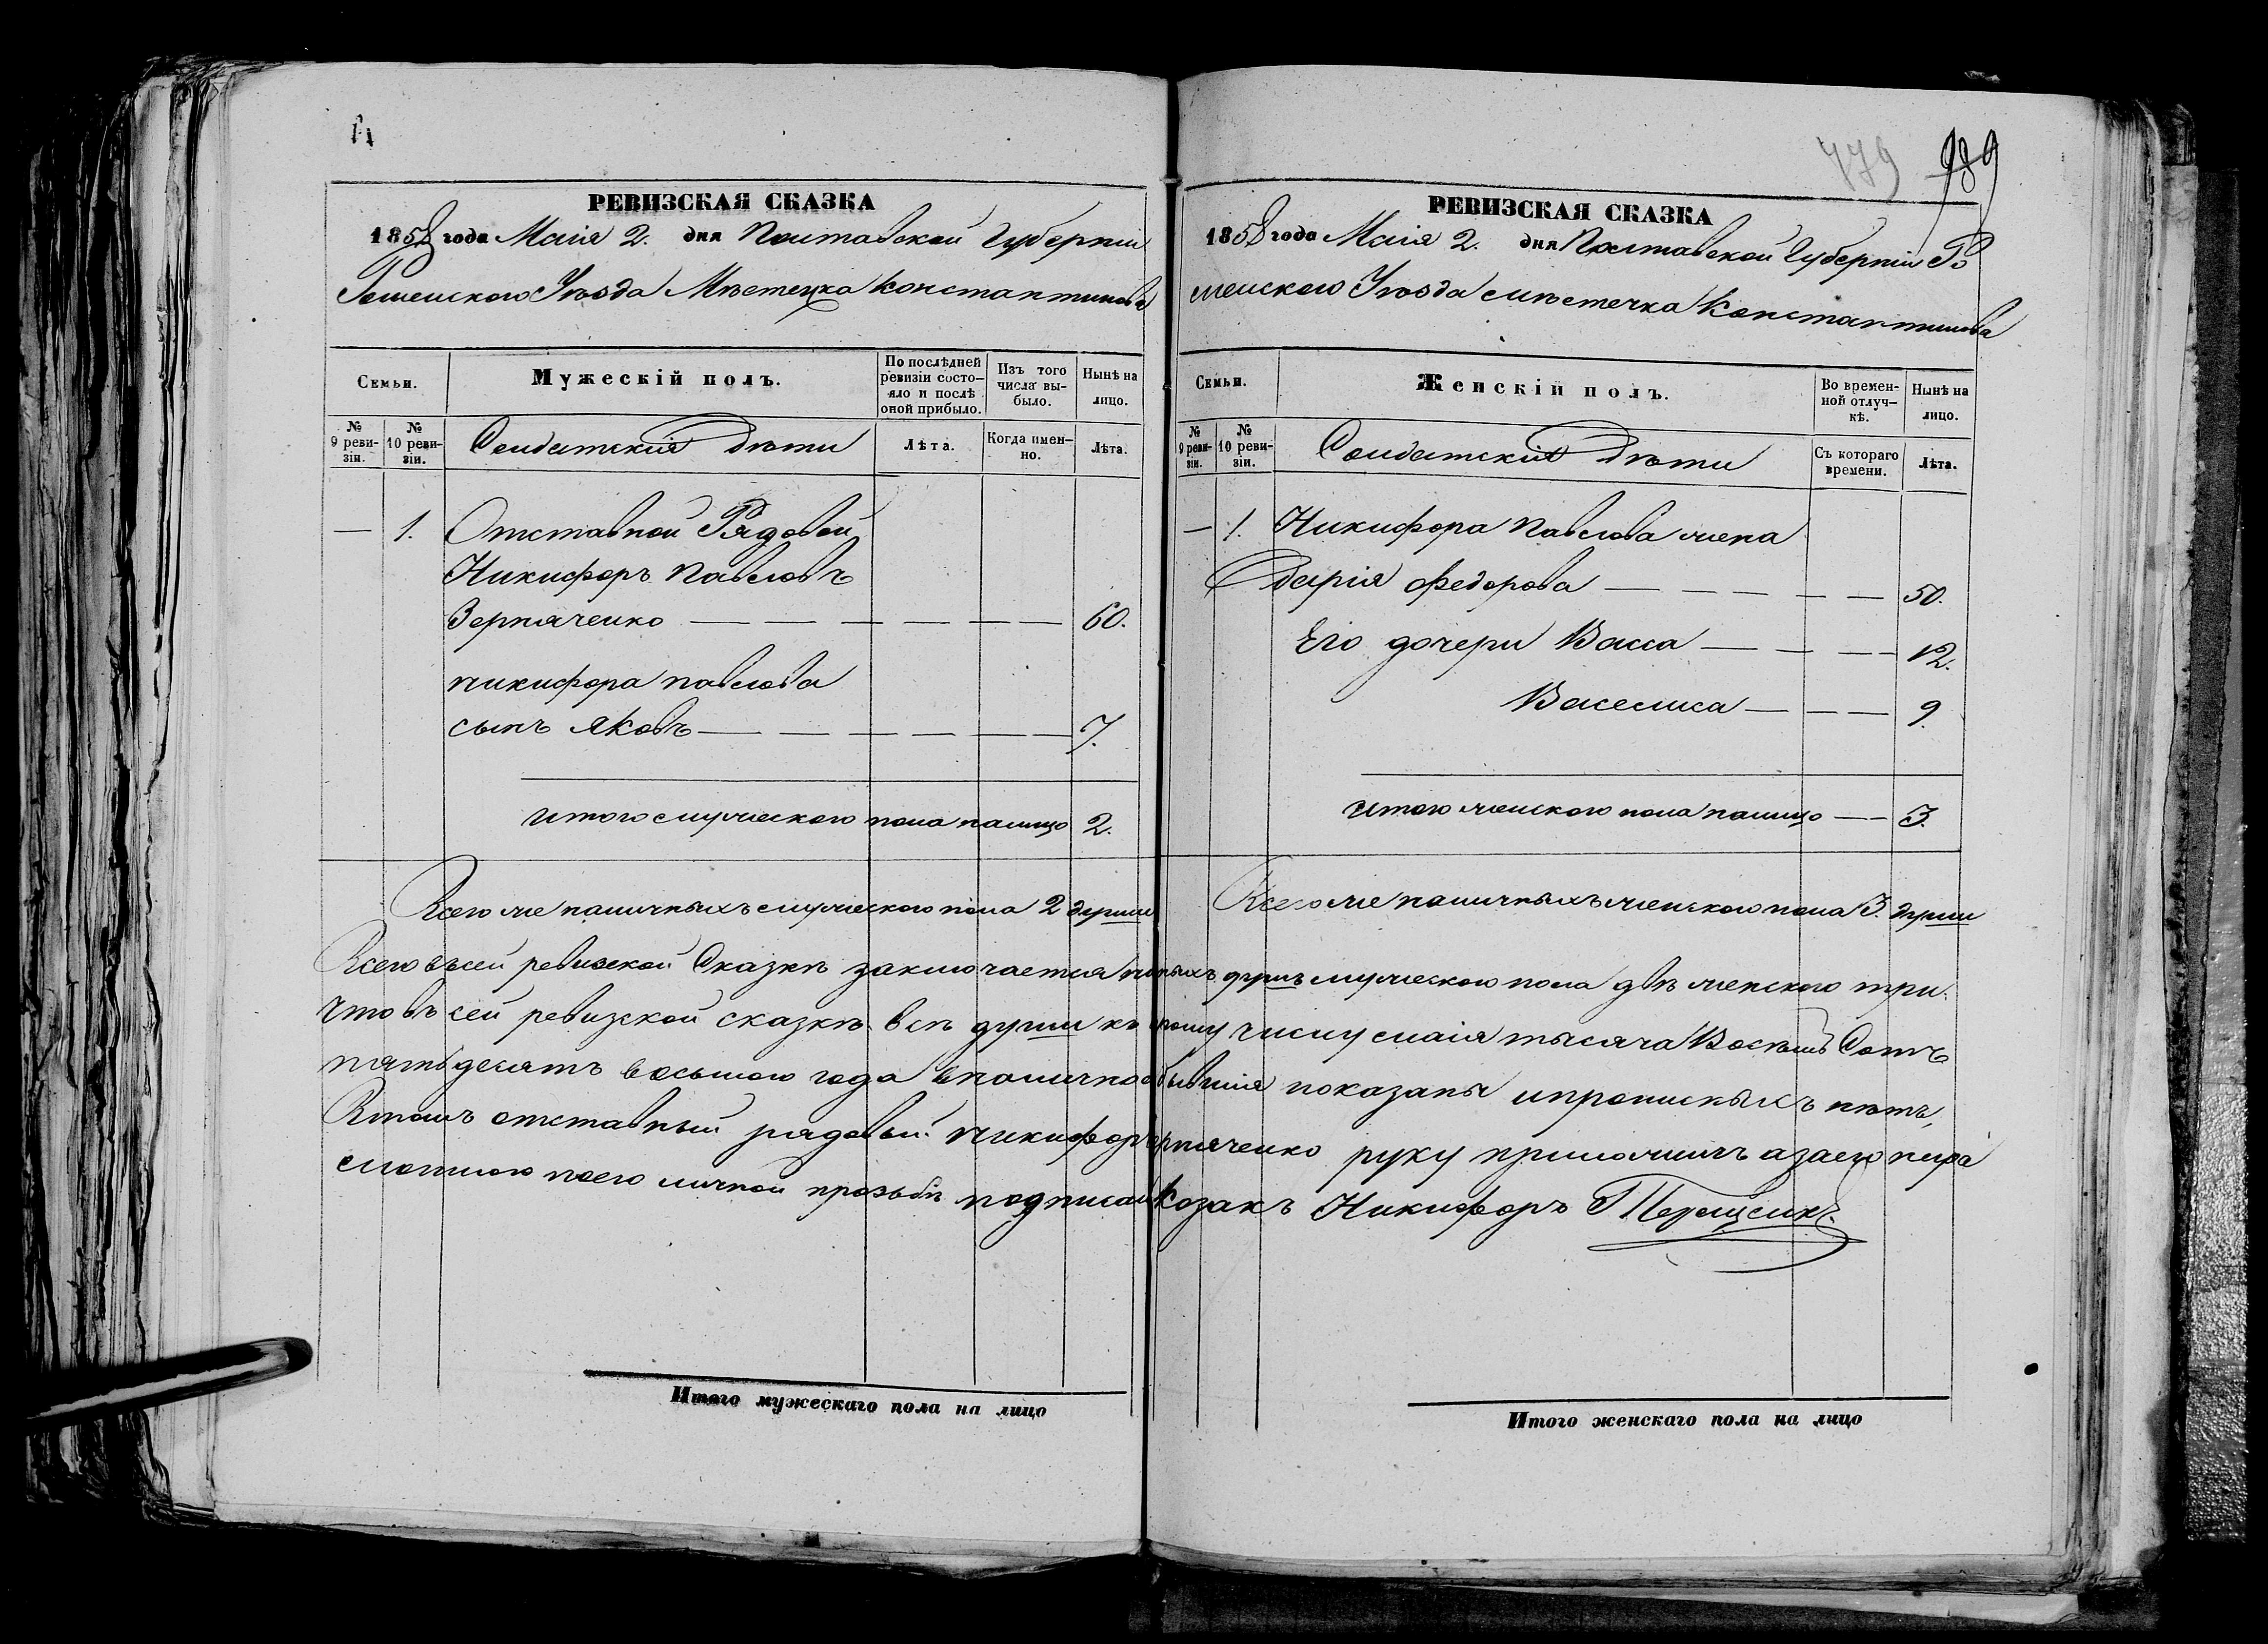 РЕВИЗСКАЯ СКАЗКА
1858 года Маія 2. дня Полтавской Губерніи
Роменского Уѣзда Мѣстечка Константинова
Семьи.
Мужескій полъ.
По послѣдней ревизіи состо-яло и послѣ оной прибыло.
Изъ того числа вы-было.
Нынѣ на лицо.
№ 9 реви-зіи.
№ 10 реви-зіи.
Солдатскія Дѣти
Лѣта.
Когда имен-но.
Лѣта.
— 1. Отставной Рядовой
Никифоръ Павловъ
— — — — — — 60.
никифора павлова
сынъ Яковъ — — — — — — 7.
итого мужеского пола налицо 2.
Всего же наличныхъ мужеского пола 2 души
Итого мужескаго пола на лицо
779 989
РЕВИЗСКАЯ СКАЗКА
1858 года Маія 2. дня Полтавской Губерніи Ро
менского Уѣзда мѣстечка Константинова
Семьи.
Женскій полъ.
Во времен-ной отлуч-кѣ.
Нынѣ на лицо.
№ 9 реви-зіи.
№ 10 реви-зіи.
Солдатскія Дѣти
Съ котораго времени.
Лѣта.
— 1. Никифора Павлова жена
Дарія Федорова — — — — — — 50.
Его дочери Васса — — — — 12.
Василиса — — — 9.
итого женского пола налицо — — 3.
Всего же наличныхъ женского пола 3. души
Всего въ сей ревизской Сказкѣ заключается душъ мужеского пола двѣ женского три.
что въ сей ревизской сказкѣ всѣ души ко числу маія тысяча Восемь Сотъ
пятьдесятъ восьмого года в налично бывшія показаны и прописныхъ нѣтъ,
В томъ отставный рядовый никифоръ руку приложилъ а за его негра
мотного по его личной прозьбѣ подписалъ Козакъ Никифоръ
Итого женскаго пола на лицо